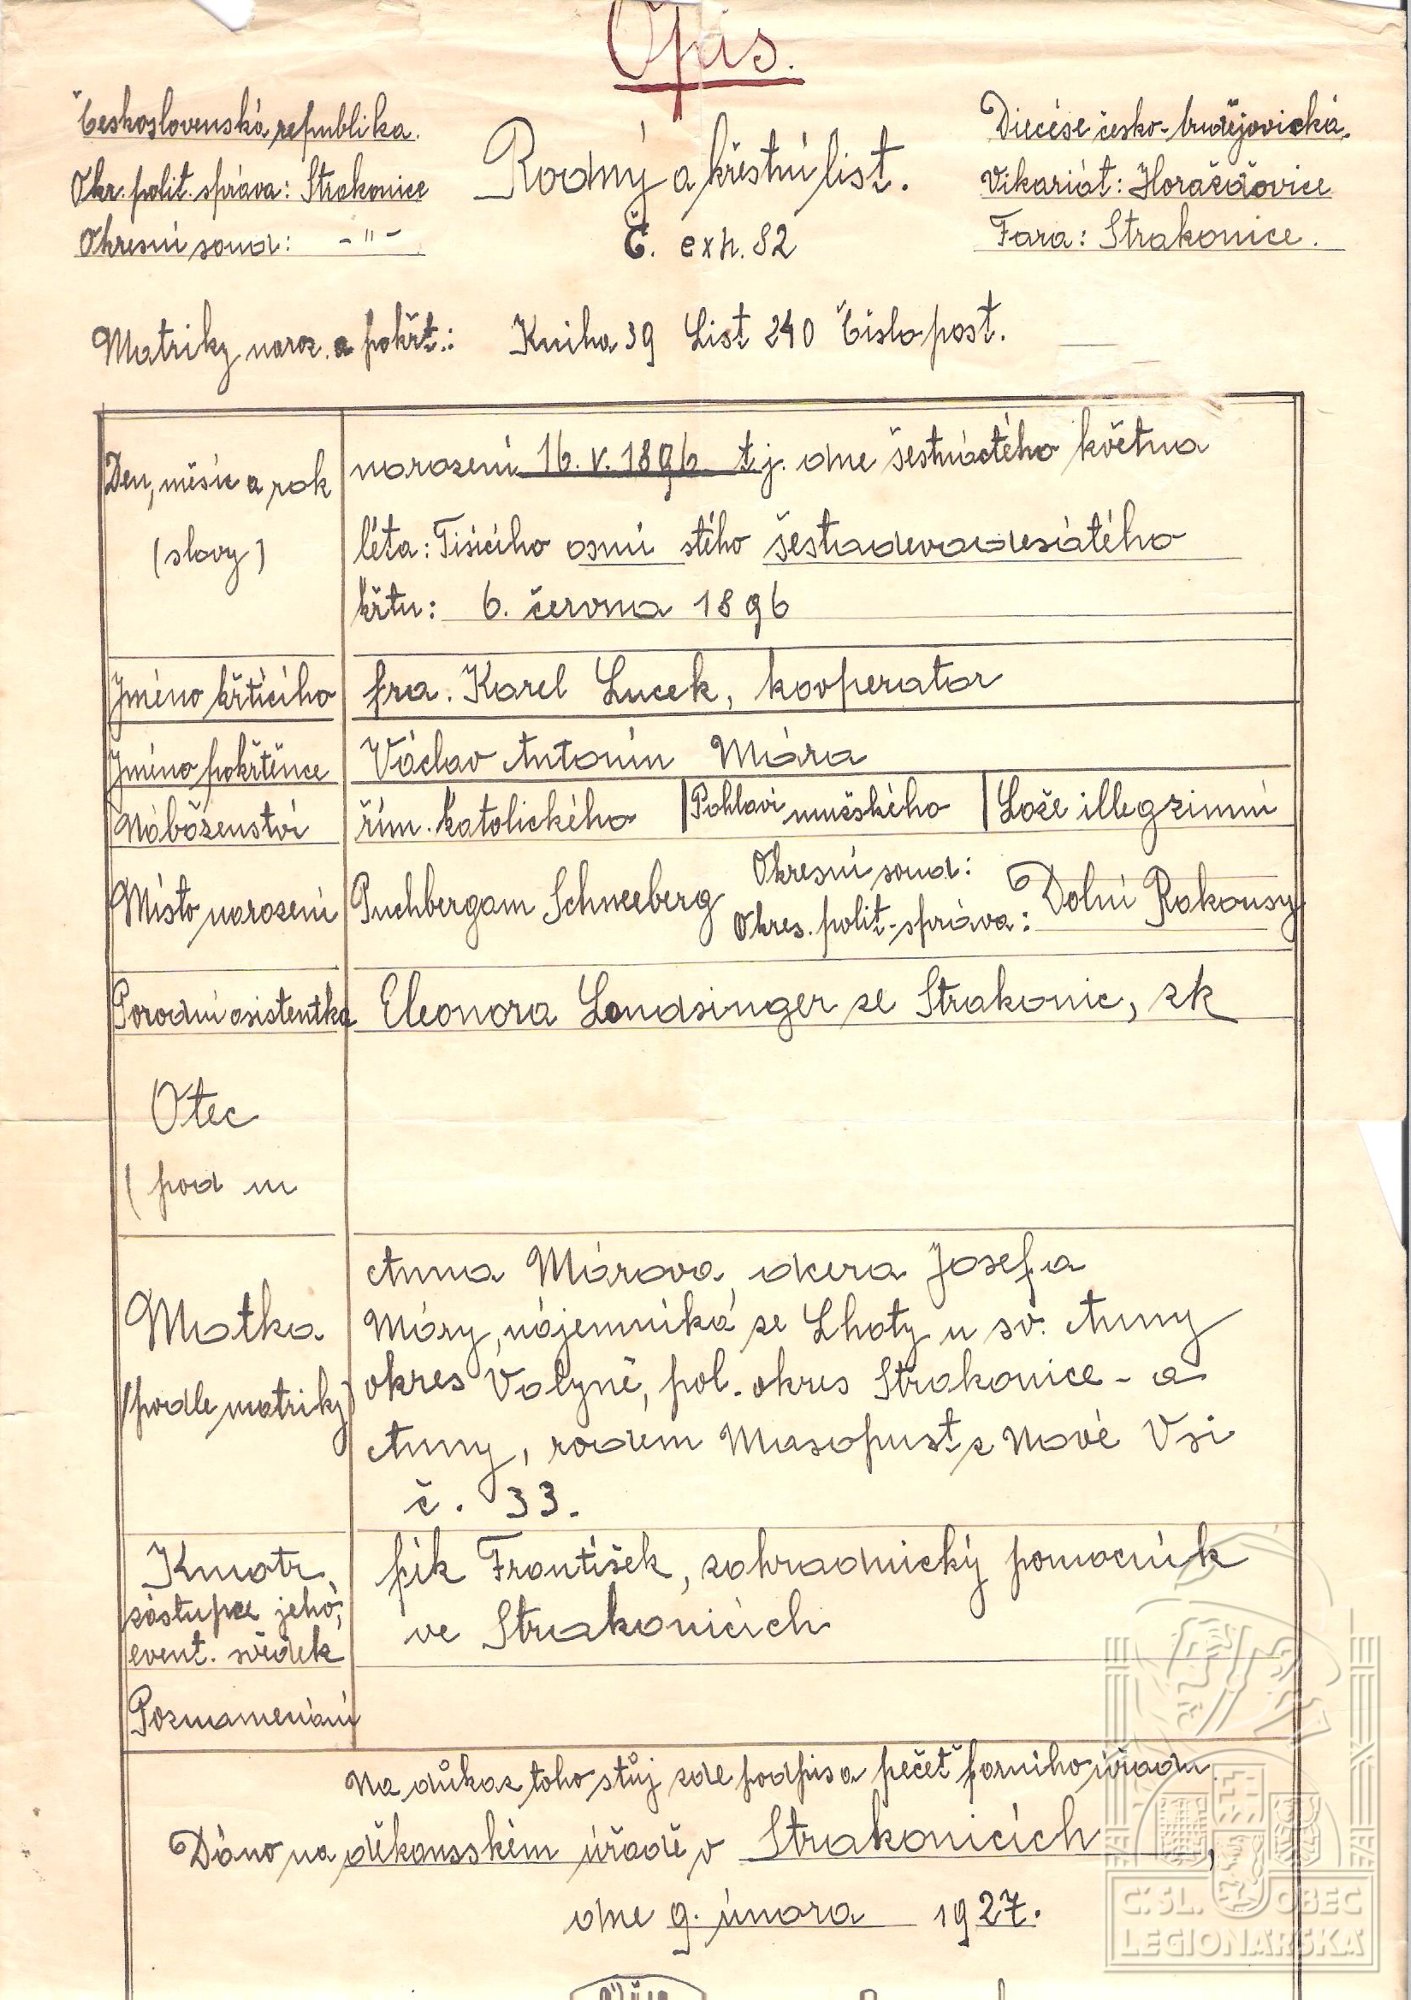 Opis.
Československá republika.
Okr. polit. správa: Strakonice
Okresní soud: -"-
Rodný a křestní list.
Č. exh. 82
Diecése česko-budějovická.
Vikariát: Horažďovice
Fara: Strakonice.
Matriky naroz. a pokřt.: Kniha 39 List 240 Číslo post.
Den, měsíc a rok
(slovy)
narození 16. V. 1896 tj. dne šestnáctého května
léta: Tisícího osmi stého šestadevadesátého
křtu: 6. června 1896
Jméno křtícího
fra. Karel Lucek, kooperator
Jméno pokřtěnce
Václav Antonín Mára
Náboženství
řím. katolického Pohlaví mužského Lože illegzimní
Místo narození
Puchbergam Schneeberg Okresní soud:
Okres. polit. správa: Dolní Rakousy
Porodní asistentka
Eleonora Landsinger ze Strakonic, zk
Otec
(pod m
Matka
(podle matriky)
Anna Márova, dcera Josefa
Máry, nájemníka ze Lhoty u sv. Anny
okres Volyně, pol. okres Strakonice - a
Anny, rodem Masopust z Nové Vsi
č. 33.
Kmotr,
zástupce jeho,
event. svědek
fík František, zahradnický pomocník
ve Strakonicích
Poznamenání
Na důkaz toho stůj zde podpis a pečeť farního úřadu.
Dáno na děkansském úřadě v Strakonicích,
dne 9. února 1927.
ČSL. OBEC
LEGIONÁŘSKÁ